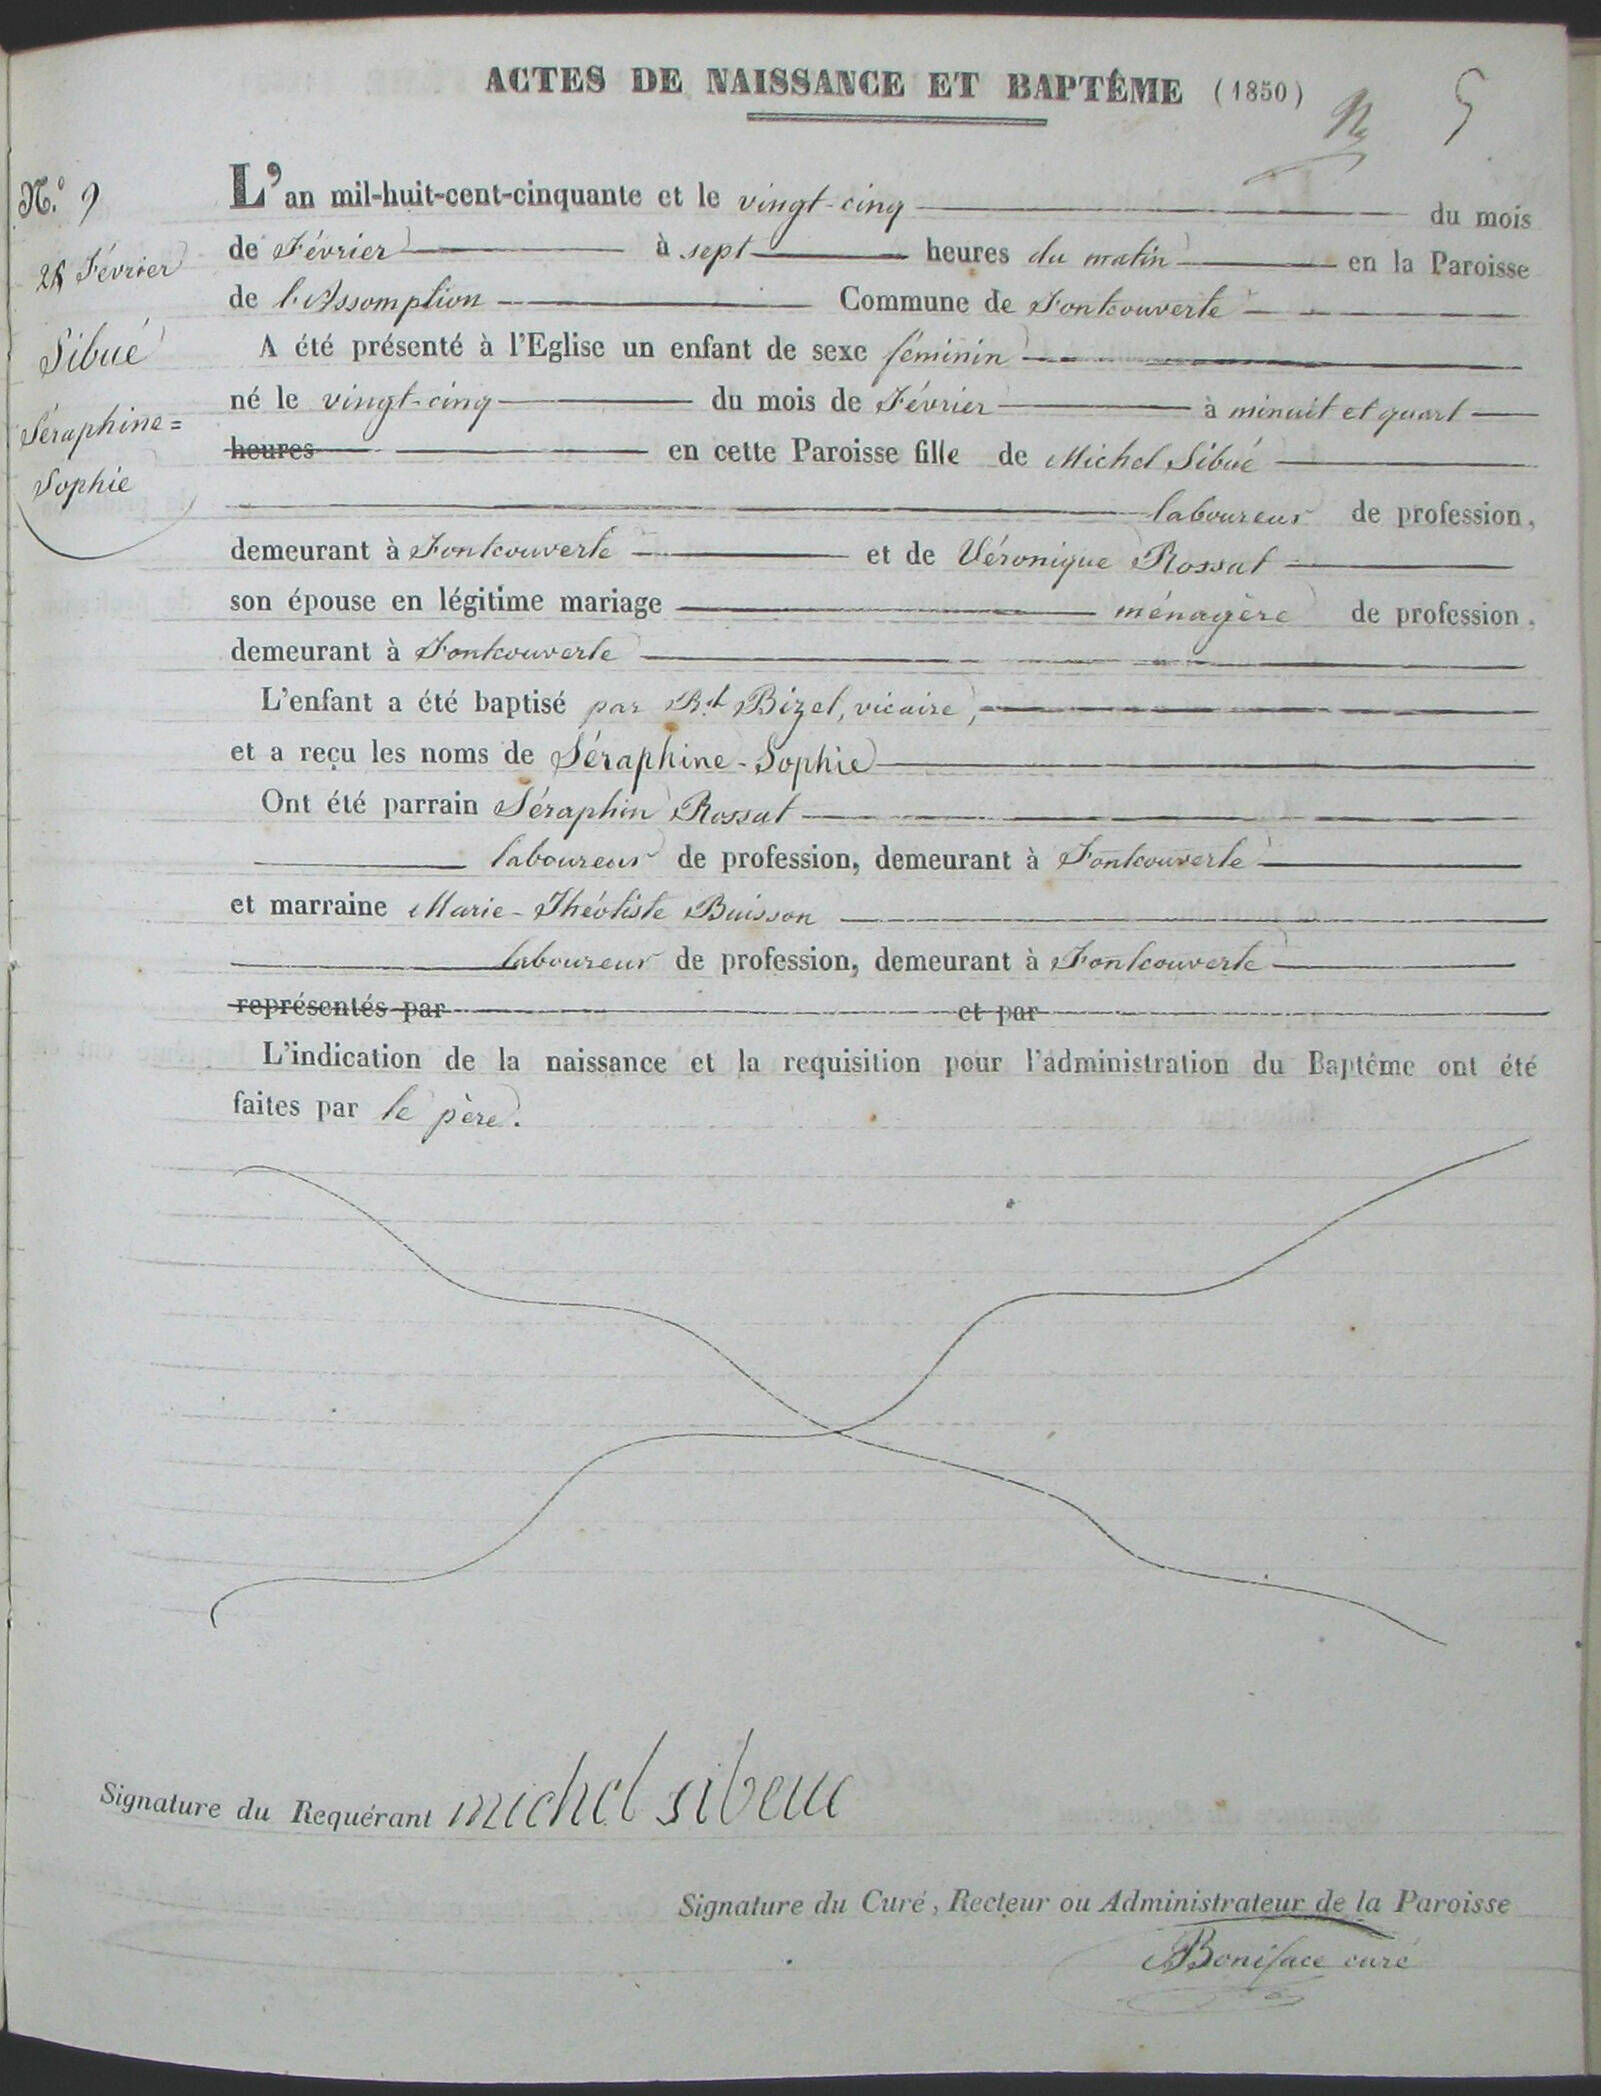 ACTES DE NAISSANCE ET BAPTÊME (1850)
5
N.º 9
25 Février
Sibué
Séraphine=
Sophie
L'an mil-huit-cent-cinquante et le vingt-cinq du mois
de Février à sept heures du matin en la Paroisse
de l'Assomption Commune de Fontcouverte
A été présenté à l'Eglise un enfant de sexe féminin
né le vingt-cinq du mois de Février à minuit et quart
heures en cette Paroisse fille de Michel Sibué
laboureur de profession,
demeurant à Fontcouverte et de Véronique Rossat
son épouse en légitime mariage ménagère de profession,
demeurant à Fontcouverte
L'enfant a été baptisé par Rd Bizel, vicaire,
et a reçu les noms de Séraphine-Sophie
Ont été parrain Séraphin Rossat
laboureur de profession, demeurant à Fontcouverte
et marraine Marie-Théotiste Buisson
laboureur de profession, demeurant à Fontcouverte
représentés par et par
L'indication de la naissance et la requisition pour l'administration du Baptême ont été
faites par le père.
Signature du Requérant michel sibeue
Signature du Curé, Recteur ou Administrateur de la Paroisse
Boniface curé